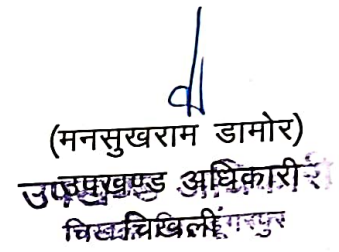 (मनसुखराम डामोर)
उपखण्ड अधिकारी
चिखिली